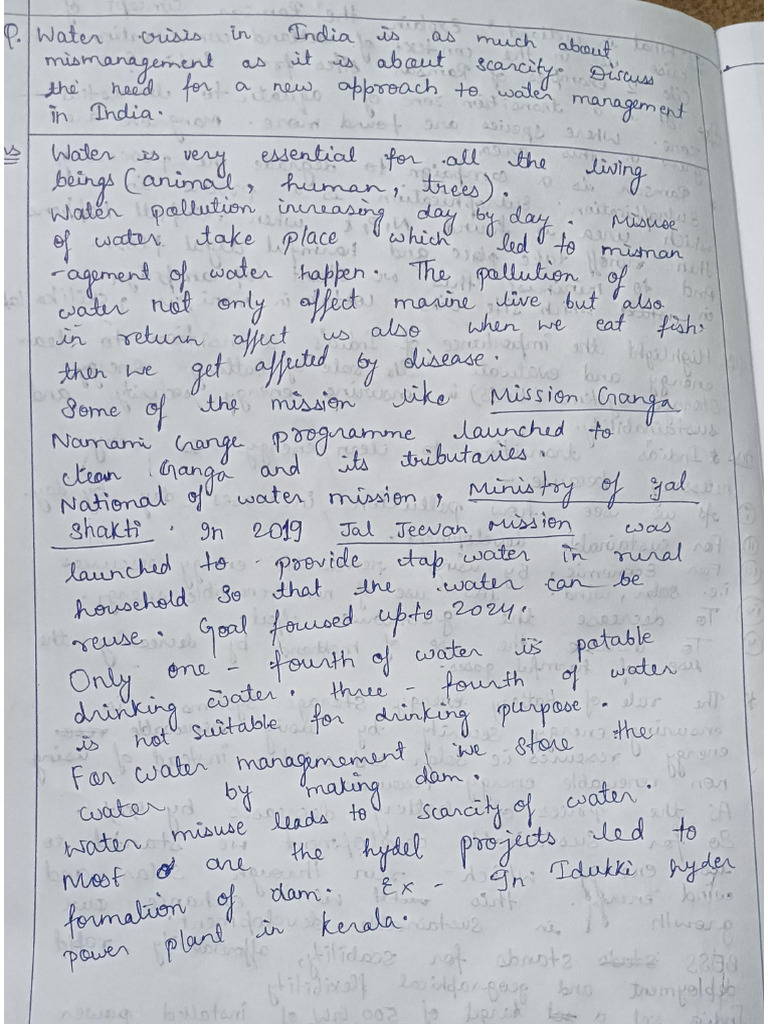 Q. Water crisis in India is as much about
mismanagement as it is about scarcity. Discuss
the need for a new approach to water management
in India.
Water is very essential for all the living
beings (animal, human, trees).
Water pollution increasing day by day. Misuse
of water take place, which led to misman
-agement of water happen. The pollution of
water not only affect marine live but also
in return affect us also when we eat fish.
then we get affected by disease.
Some of the mission like Mission Ganga
Namami Gange programme launched to
clean Ganga and its tributaries.
National of water mission, Ministry of Jal
Shakti. In 2019 Jal Jeevan Mission was
launched to provide tap water in rural
household so that the water can be
reuse. Goal focused upto 2024.
Only one - fourth of water is potable
drinking water. three - fourth of water
is not suitable for drinking purpose.
For water managemement, we store the
water by making dam.
Water misuse leads to scarcity of water.
Most are the hydel projects led to
formation of dam. Ex - In Idukki hyder
power plant in kerala.